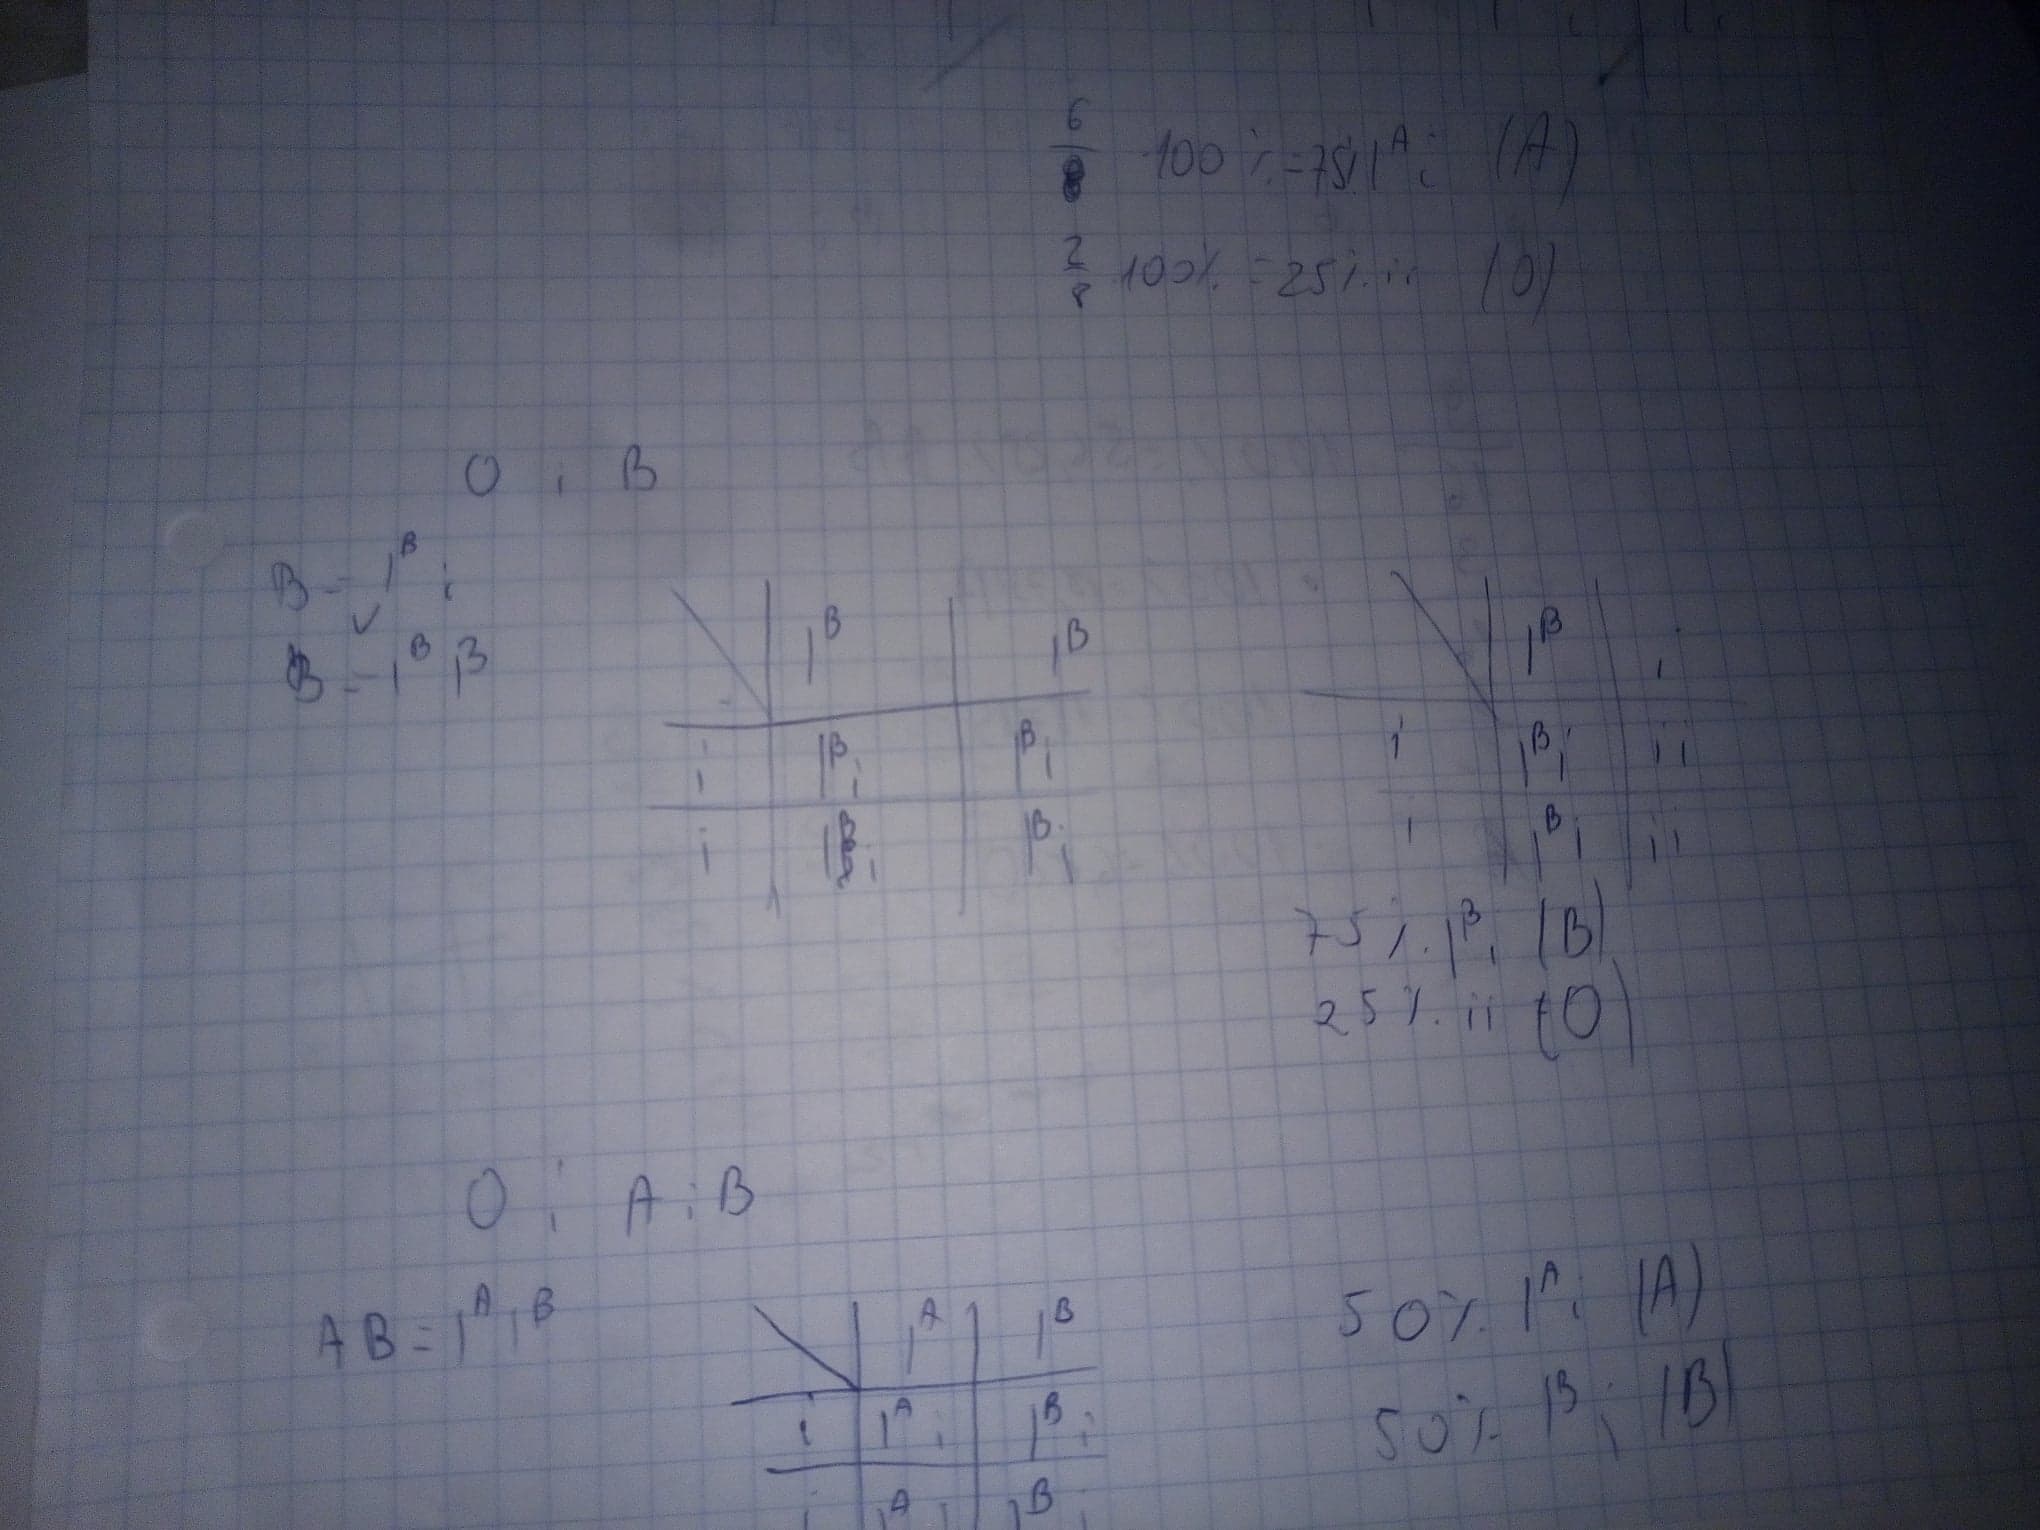 6/8 · 100% = 75% I^A i (A)
2/8 100% = 25% ii (O)
O i B
B = I^B i
B = I^B I^B
I^B I^B
i I^B i I^B i
i I^B i I^B i
I^B i
i I^B i ii
i I^B i ii
75% I^B i (B)
25% ii (O)
O i A i B
AB = I^A I^B
I^A I^B
i I^A i I^B i
i I^A i I^B i
50% I^A i (A)
50% I^B i (B)